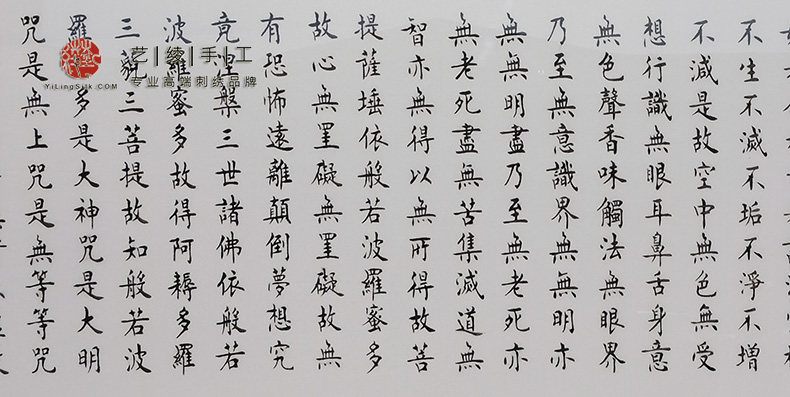 不生不滅不垢不淨不增
不減是故空中無色無受
想行識無眼耳鼻舌身意
無色聲香味觸法無眼界
乃至無意識界無無明亦
無無明盡乃至無老死亦
無老死盡無苦集滅道無
智亦無得以無所得故菩
提薩埵依般若波羅蜜多
故心無罣礙無罣礙故無
有恐怖遠離顛倒夢想究
竟涅槃三世諸佛依般若
波羅蜜多故得阿耨多羅
三藐三菩提故知般若波
羅多是大神咒是大明
咒是無上咒是無等等咒
艺|绫|手|工
专业高端刺绣品牌
YiLingSilk.COM